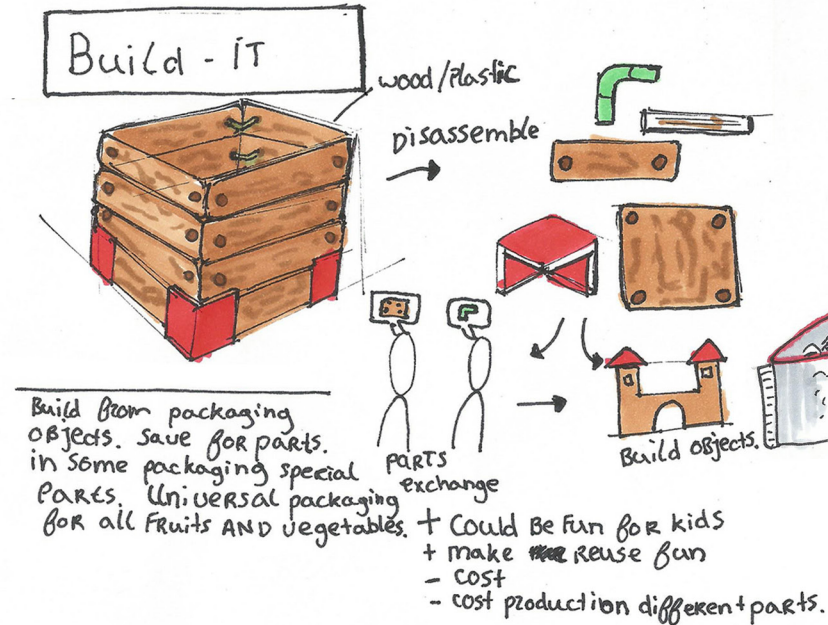 Build - IT
wood/plastic
Disassemble
Build from packaging
objects. Save for parts.
in some packaging special
Parts. Universal packaging
for all Fruits AND vegetables.
PARTS
exchange
Build objects.
+ Could Be Fun for kids
+ make Reuse fun
- cost
- cost production different parts.